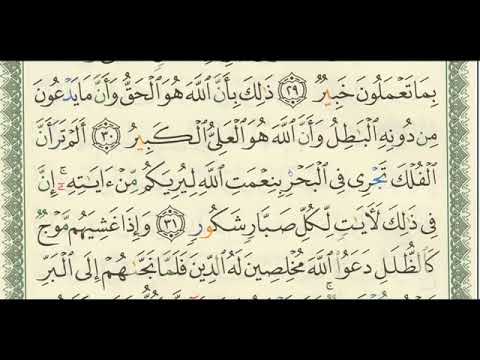 بِمَا تَعْمَلُونَ خَبِيرٌ ٢٩ ذَٰلِكَ بِأَنَّ ٱللَّهَ هُوَ ٱلْحَقُّ وَأَنَّ مَا يَدْعُونَ
مِن دُونِهِ ٱلْبَٰطِلُ وَأَنَّ ٱللَّهَ هُوَ ٱلْعَلِىُّ ٱلْكَبِيرُ ٣٠ أَلَمْ تَرَ أَنَّ
ٱلْفُلْكَ تَجْرِى فِى ٱلْبَحْرِ بِنِعْمَتِ ٱللَّهِ لِيُرِيَكُم مِّنْ ءَايَٰتِهِۦٓ ۚ إِنَّ
فِى ذَٰلِكَ لَءَايَٰتٍ لِّكُلِّ صَبَّارٍ شَكُورٍ ٣١ وَإِذَا غَشِيَهُم مَّوْجٌ
كَٱلظُّلَلِ دَعَوُا۟ ٱللَّهَ مُخْلِصِينَ لَهُ ٱلدِّينَ فَلَمَّا نَجَّىٰهُمْ إِلَى ٱلْبَرِّ